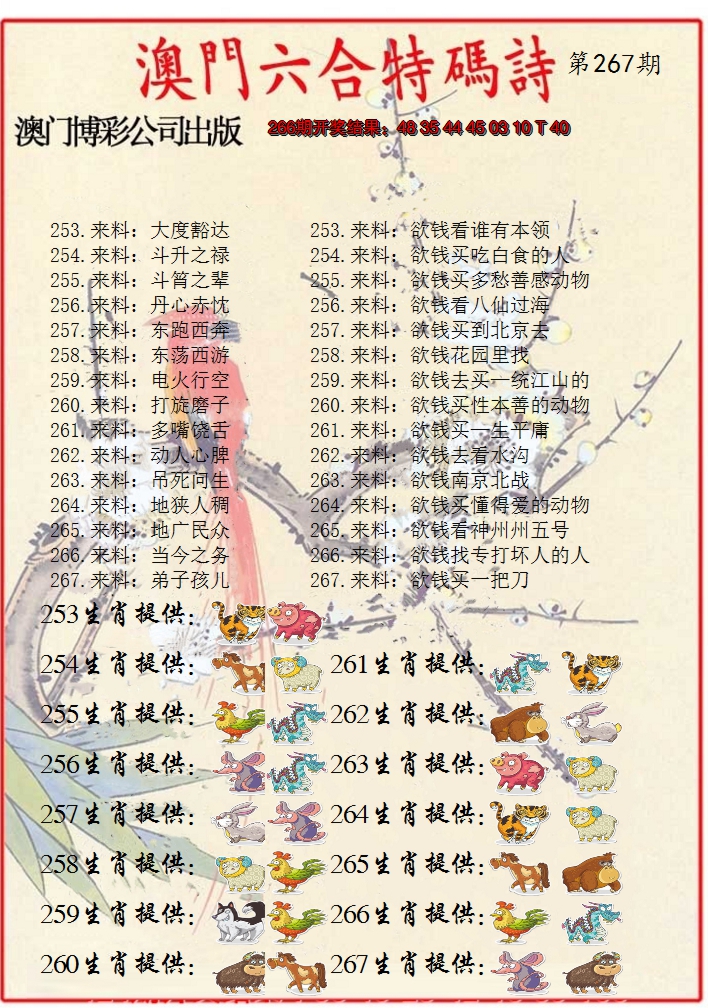 澳門六合特碼詩 第267期
澳门博彩公司出版 266期开奖结果：48 35 44 45 03 10 T 40
253.来料：大度豁达 253.来料：欲钱看谁有本领
254.来料：斗升之禄 254.来料：欲钱买吃白食的人
255.来料：斗筲之辈 255.来料：欲钱买多愁善感动物
256.来料：丹心赤忱 256.来料：欲钱看八仙过海
257.来料：东跑西奔 257.来料：欲钱买到北京去
258.来料：东荡西游 258.来料：欲钱花园里找
259.来料：电火行空 259.来料：欲钱去买一统江山的
260.来料：打旋磨子 260.来料：欲钱买性本善的动物
261.来料：多嘴饶舌 261.来料：欲钱买一生平庸
262.来料：动人心脾 262.来料：欲钱去看水沟
263.来料：吊死问生 263.来料：欲钱南京北战
264.来料：地狭人稠 264.来料：欲钱买懂得爱的动物
265.来料：地广民众 265.来料：欲钱看神州州五号
266.来料：当今之务 266.来料：欲钱找专打坏人的人
267.来料：弟子孩儿 267.来料：欲钱买一把刀
253生肖提供：
254生肖提供： 261生肖提供：
255生肖提供： 262生肖提供：
256生肖提供： 263生肖提供：
257生肖提供： 264生肖提供：
258生肖提供： 265生肖提供：
259生肖提供： 266生肖提供：
260生肖提供： 267生肖提供：